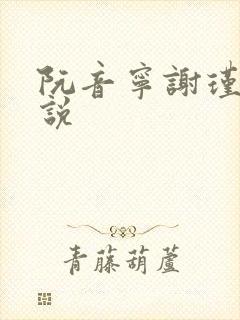 阮音寧謝瑾
說
青藤葫蘆